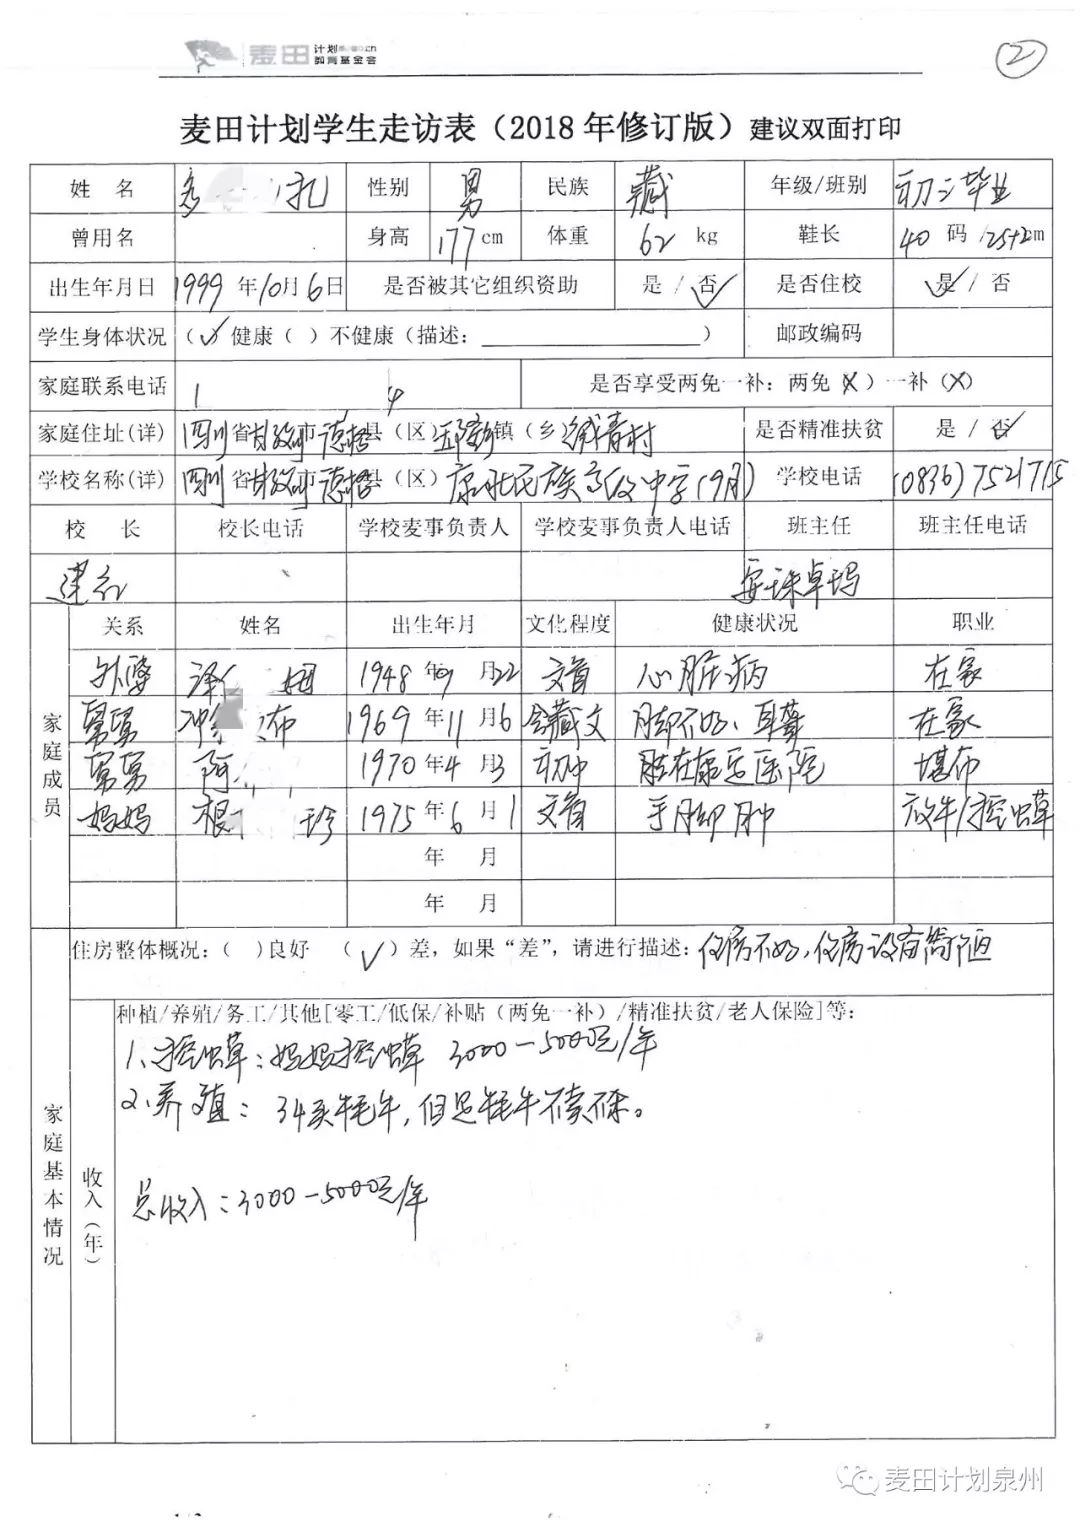 麦田 计划
教育基金会
②
麦田计划学生走访表（2018年修订版）建议双面打印
姓 名 多 扎 性别 男 民族 藏 年级/班别 初三毕业
曾用名 身高 177cm 体重 62 kg 鞋长 40 码/25+2cm
出生年月日 1999年10月6日 是否被其它组织资助 是/否✓ 是否住校 是✓/否
学生身体状况 （✓）健康（ ）不健康（描述：＿＿＿＿＿＿） 邮政编码
家庭联系电话 1 4 是否享受两免一补：两免（X）一补（X）
家庭住址(详) 四川省甘孜州市德格县（区） 镇（乡） 青村 是否精准扶贫 是/否✓
学校名称(详) 四川省甘孜州市德格县（区）康北民族高级中学(9月) 学校电话 (0836)7521715
校 长 校长电话 学校麦事负责人 学校麦事负责人电话 班主任 班主任电话
安珠卓玛
家庭成员
关系 姓名 出生年月 文化程度 健康状况 职业
外婆 泽 姆 1948年9月22 文盲 心脏病 在家
舅舅 布 1969年11月6 会藏文 脚不好、耳聋 在家
舅舅 阿 1970年4月3 初中 医院 堪布
妈妈 根 珍 1975年6月1 文盲 手脚肿 放牛/挖虫草
年 月
年 月
家庭基本情况
住房整体概况：（ ）良好 （✓）差，如果“差”，请进行描述：住房不好，住房设备简陋
收入（年）
种植/养殖/务工/其他[零工/低保/补贴（两免一补）/精准扶贫/老人保险]等：
1、挖虫草：妈妈挖虫草 3000-5000元/年
2、养殖：34头牦牛，但是牦牛不卖不杀。
总收入：3000-5000元/年
麦田计划泉州